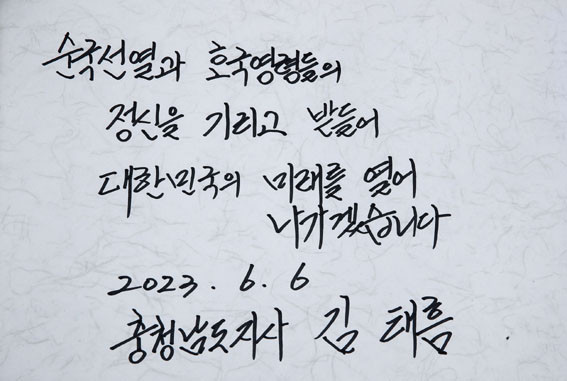 순국선열과 호국영령들의
정신을 기리고 받들어
대한민국의 미래를 열어
나가겠습니다
2023. 6. 6
충청남도지사 김태흠